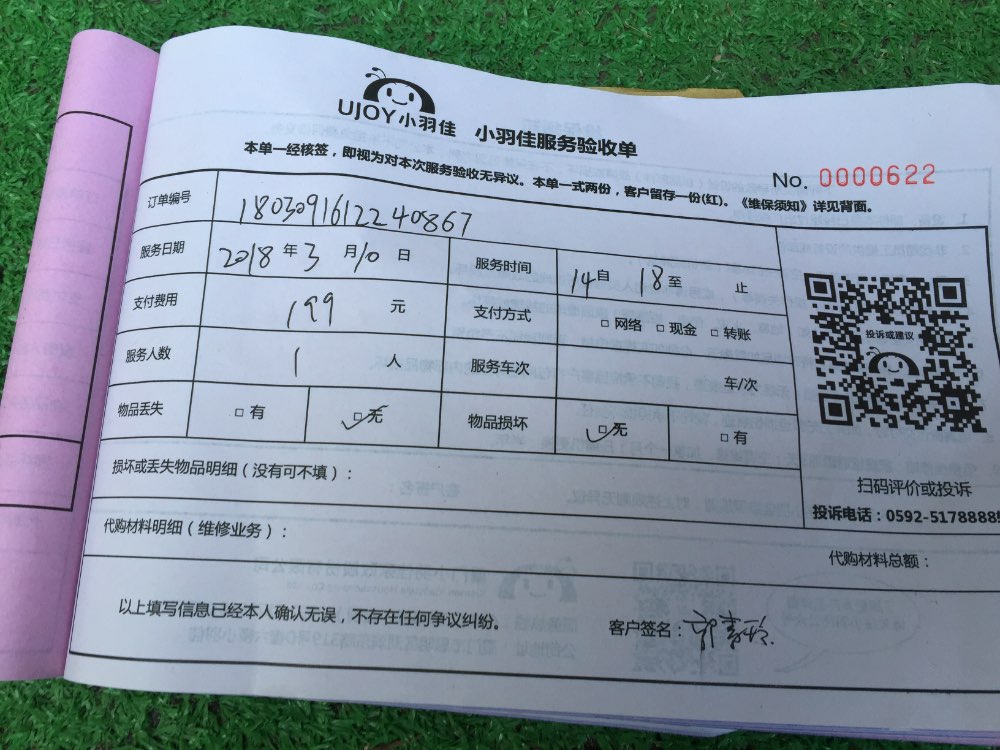 UJOY小羽佳 小羽佳服务验收单
本单一经核签，即视为对本次服务验收无异议。本单一式两份，客户留存一份(红)。《维保须知》详见背面。
No. 0000622
订单编号 18030916122240867
服务日期 2018 年 3 月 10 日 服务时间 14 自 18 至 止
支付费用 199 元 支付方式 □ 网络 □ 现金 □ 转账
服务人数 1 人 服务车次 车/次
物品丢失 □ 有 □ 无 物品损坏 □ 无 □ 有
投诉或建议
扫码评价或投诉
投诉电话：0592-5178888
损坏或丢失物品明细（没有可不填）：
代购材料明细（维修业务）：
代购材料总额：
以上填写信息已经本人确认无误，不存在任何争议纠纷。
客户签名：